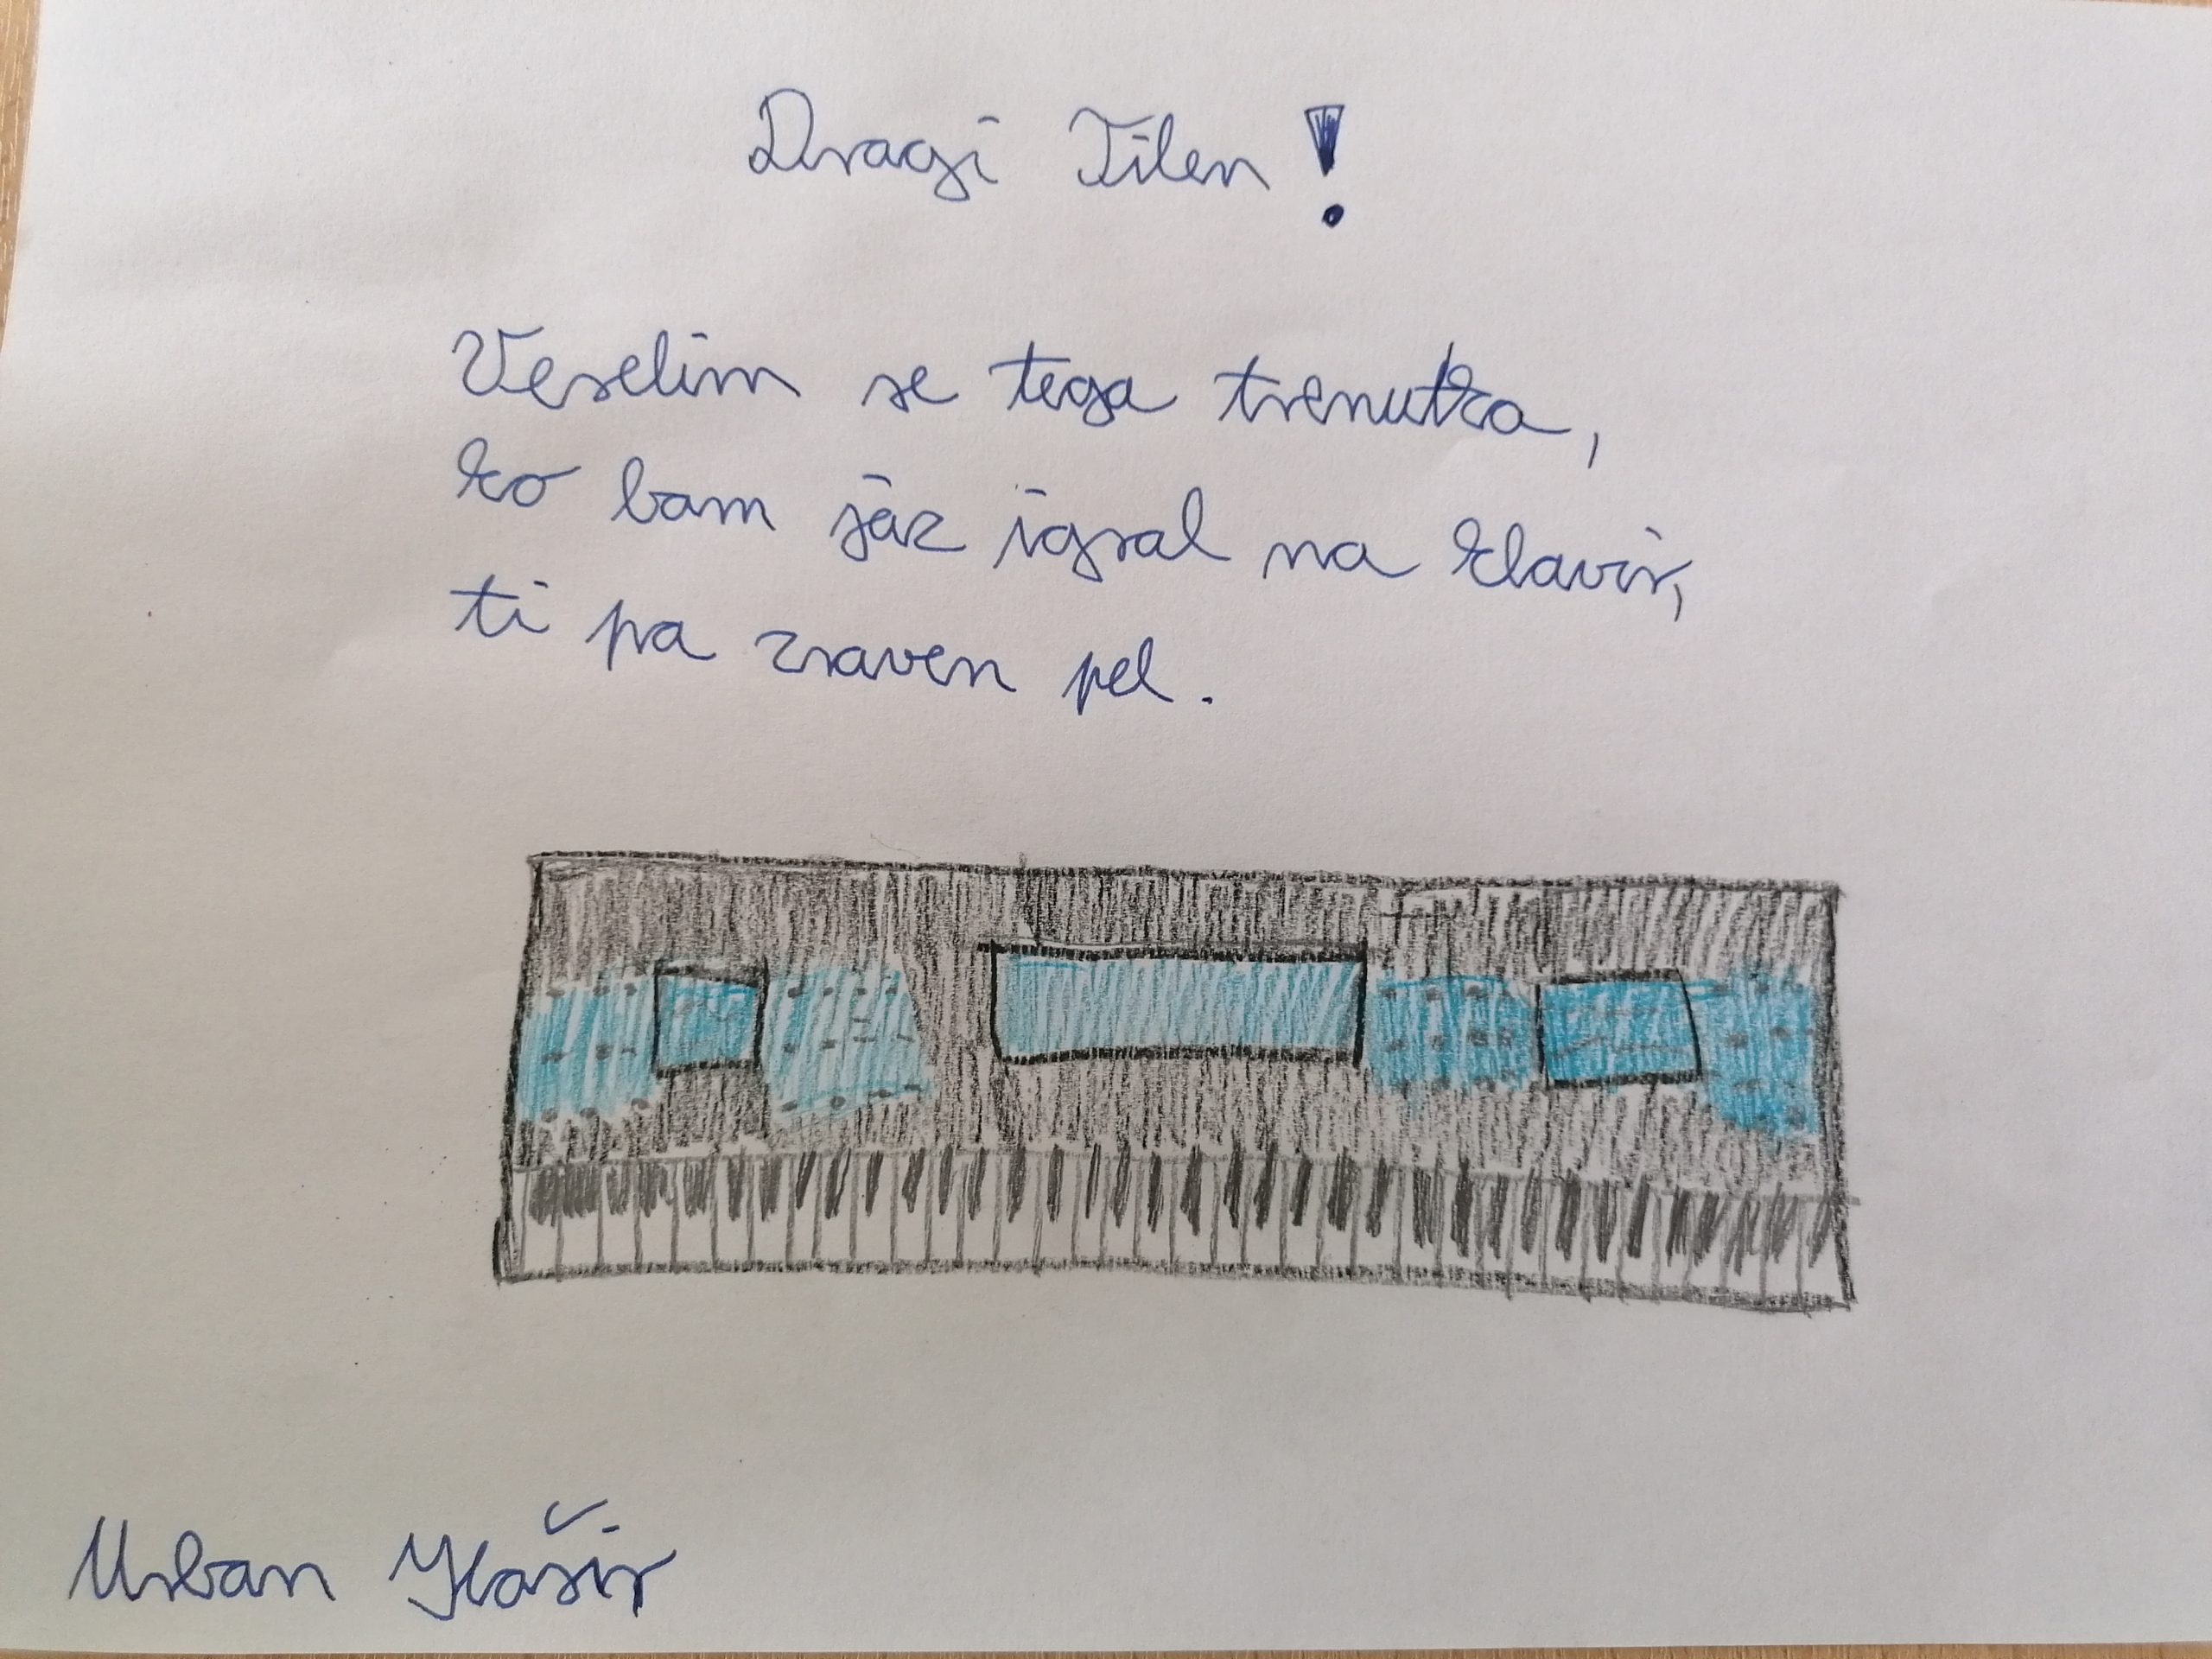 Dragi Tilen!
Veselim se tega trenutka,
ko bam jaz igral na klavir,
ti pa zraven pel.
Urban